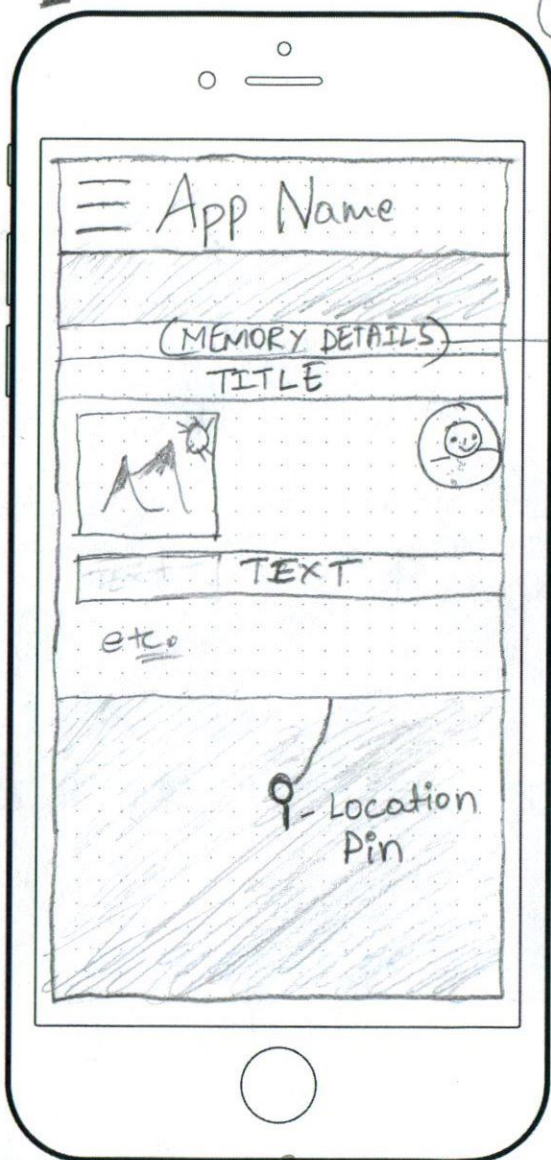 App Name
(MEMORY DETAILS)
TITLE
TEXT TEXT
etc.
Location
Pin